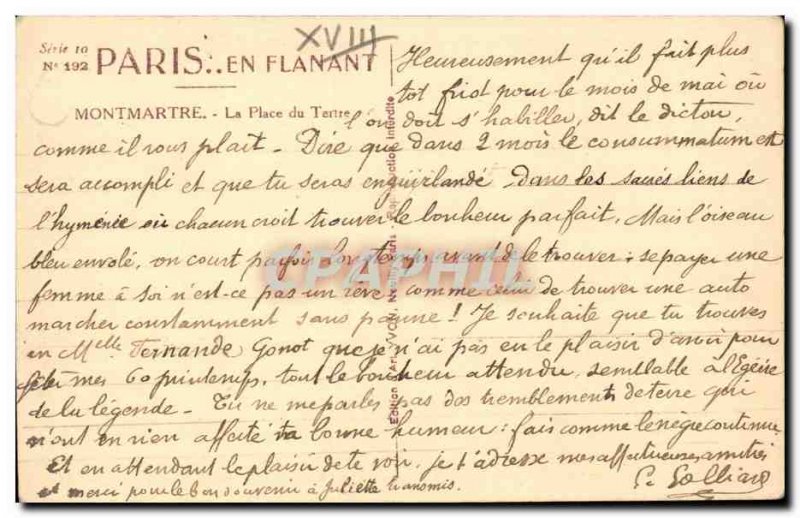 XVIII
Série 10
N° 192 PARIS... EN FLANANT
MONTMARTRE. - La Place du Tertre
Heureusement qu'il fait plus
tot friod pour le mois de mai où
l'on doit s'habiller, dit le dicton,
comme il vous plait - Dire que dans 2 mois le consummatum est
sera accompli et que tu seras enguirlandé dans les sacrés liens de
l'hyménée où chacun croit trouver le bonheur parfait, Mais l'oiseau
bleu envolé, on court parfois longtemps avant de le trouver: se payer une
femme à soi n'est-ce pas un rêve comme celui de trouver une auto
marcher constamment sans panne! Je souhaite que tu trouves
en Melle Fernande Gonot que je n'ai pas eu le plaisir d'avoir pour
fêter mes 60 printemps, tout le bonheur attendu, semblable à l'Egérie
de la légende - Tu ne me parles pas des tremblements de terre qui
n'ont en rien affecté ta bonne humeur: fais comme le nègre continue
Et en attendant le plaisir de te voir, je t'adresse mes affectueuses amitiés
et merci pour le bon souvenir à Juliette transmis.
Reproduction interdite
CPAPHIL